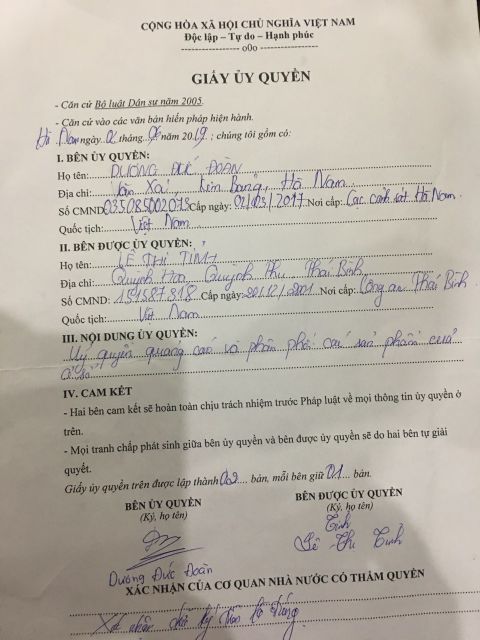 CỘNG HÒA XÃ HỘI CHỦ NGHĨA VIỆT NAM
Độc lập – Tự do – Hạnh phúc
----------------- o0o -----------------
GIẤY ỦY QUYỀN
- Căn cứ Bộ luật Dân sự năm 2005.
- Căn cứ vào các văn bản hiến pháp hiện hành.
Hà Nam ngày 02 tháng 06 năm 2019; chúng tôi gồm có:
I. BÊN ỦY QUYỀN:
Họ tên: DƯƠNG ĐỨC ĐOÀN
Địa chỉ: Văn Xá, Kim Bảng, Hà Nam
Số CMND: 035085002073 Cấp ngày: 02/03/2017 Nơi cấp: Cục cảnh sát Hà Nam.
Quốc tịch: Việt Nam
II. BÊN ĐƯỢC ỦY QUYỀN:
Họ tên: LÊ THỊ TÍNH
Địa chỉ: Quỳnh Quỳnh Phụ Thái Bình
Số CMND: 151587818 Cấp ngày: 20/12/2001 Nơi cấp: Công an Thái Bình
Quốc tịch: Việt Nam
III. NỘI DUNG ỦY QUYỀN:
Uỷ quyền quảng cáo và phân phối các sản phẩm của
cơ sở
IV. CAM KẾT
- Hai bên cam kết sẽ hoàn toàn chịu trách nhiệm trước Pháp luật về mọi thông tin ủy quyền ở
trên.
- Mọi tranh chấp phát sinh giữa bên ủy quyền và bên được ủy quyền sẽ do hai bên tự giải
quyết.
Giấy ủy quyền trên được lập thành 02 bản, mỗi bên giữ 01 bản.
BÊN ỦY QUYỀN BÊN ĐƯỢC ỦY QUYỀN
(Ký, họ tên) (Ký, họ tên)
Tính
Lê Thị Tính
Dương Đức Đoàn
XÁC NHẬN CỦA CƠ QUAN NHÀ NƯỚC CÓ THẨM QUYỀN
Xác nhận chữ ký